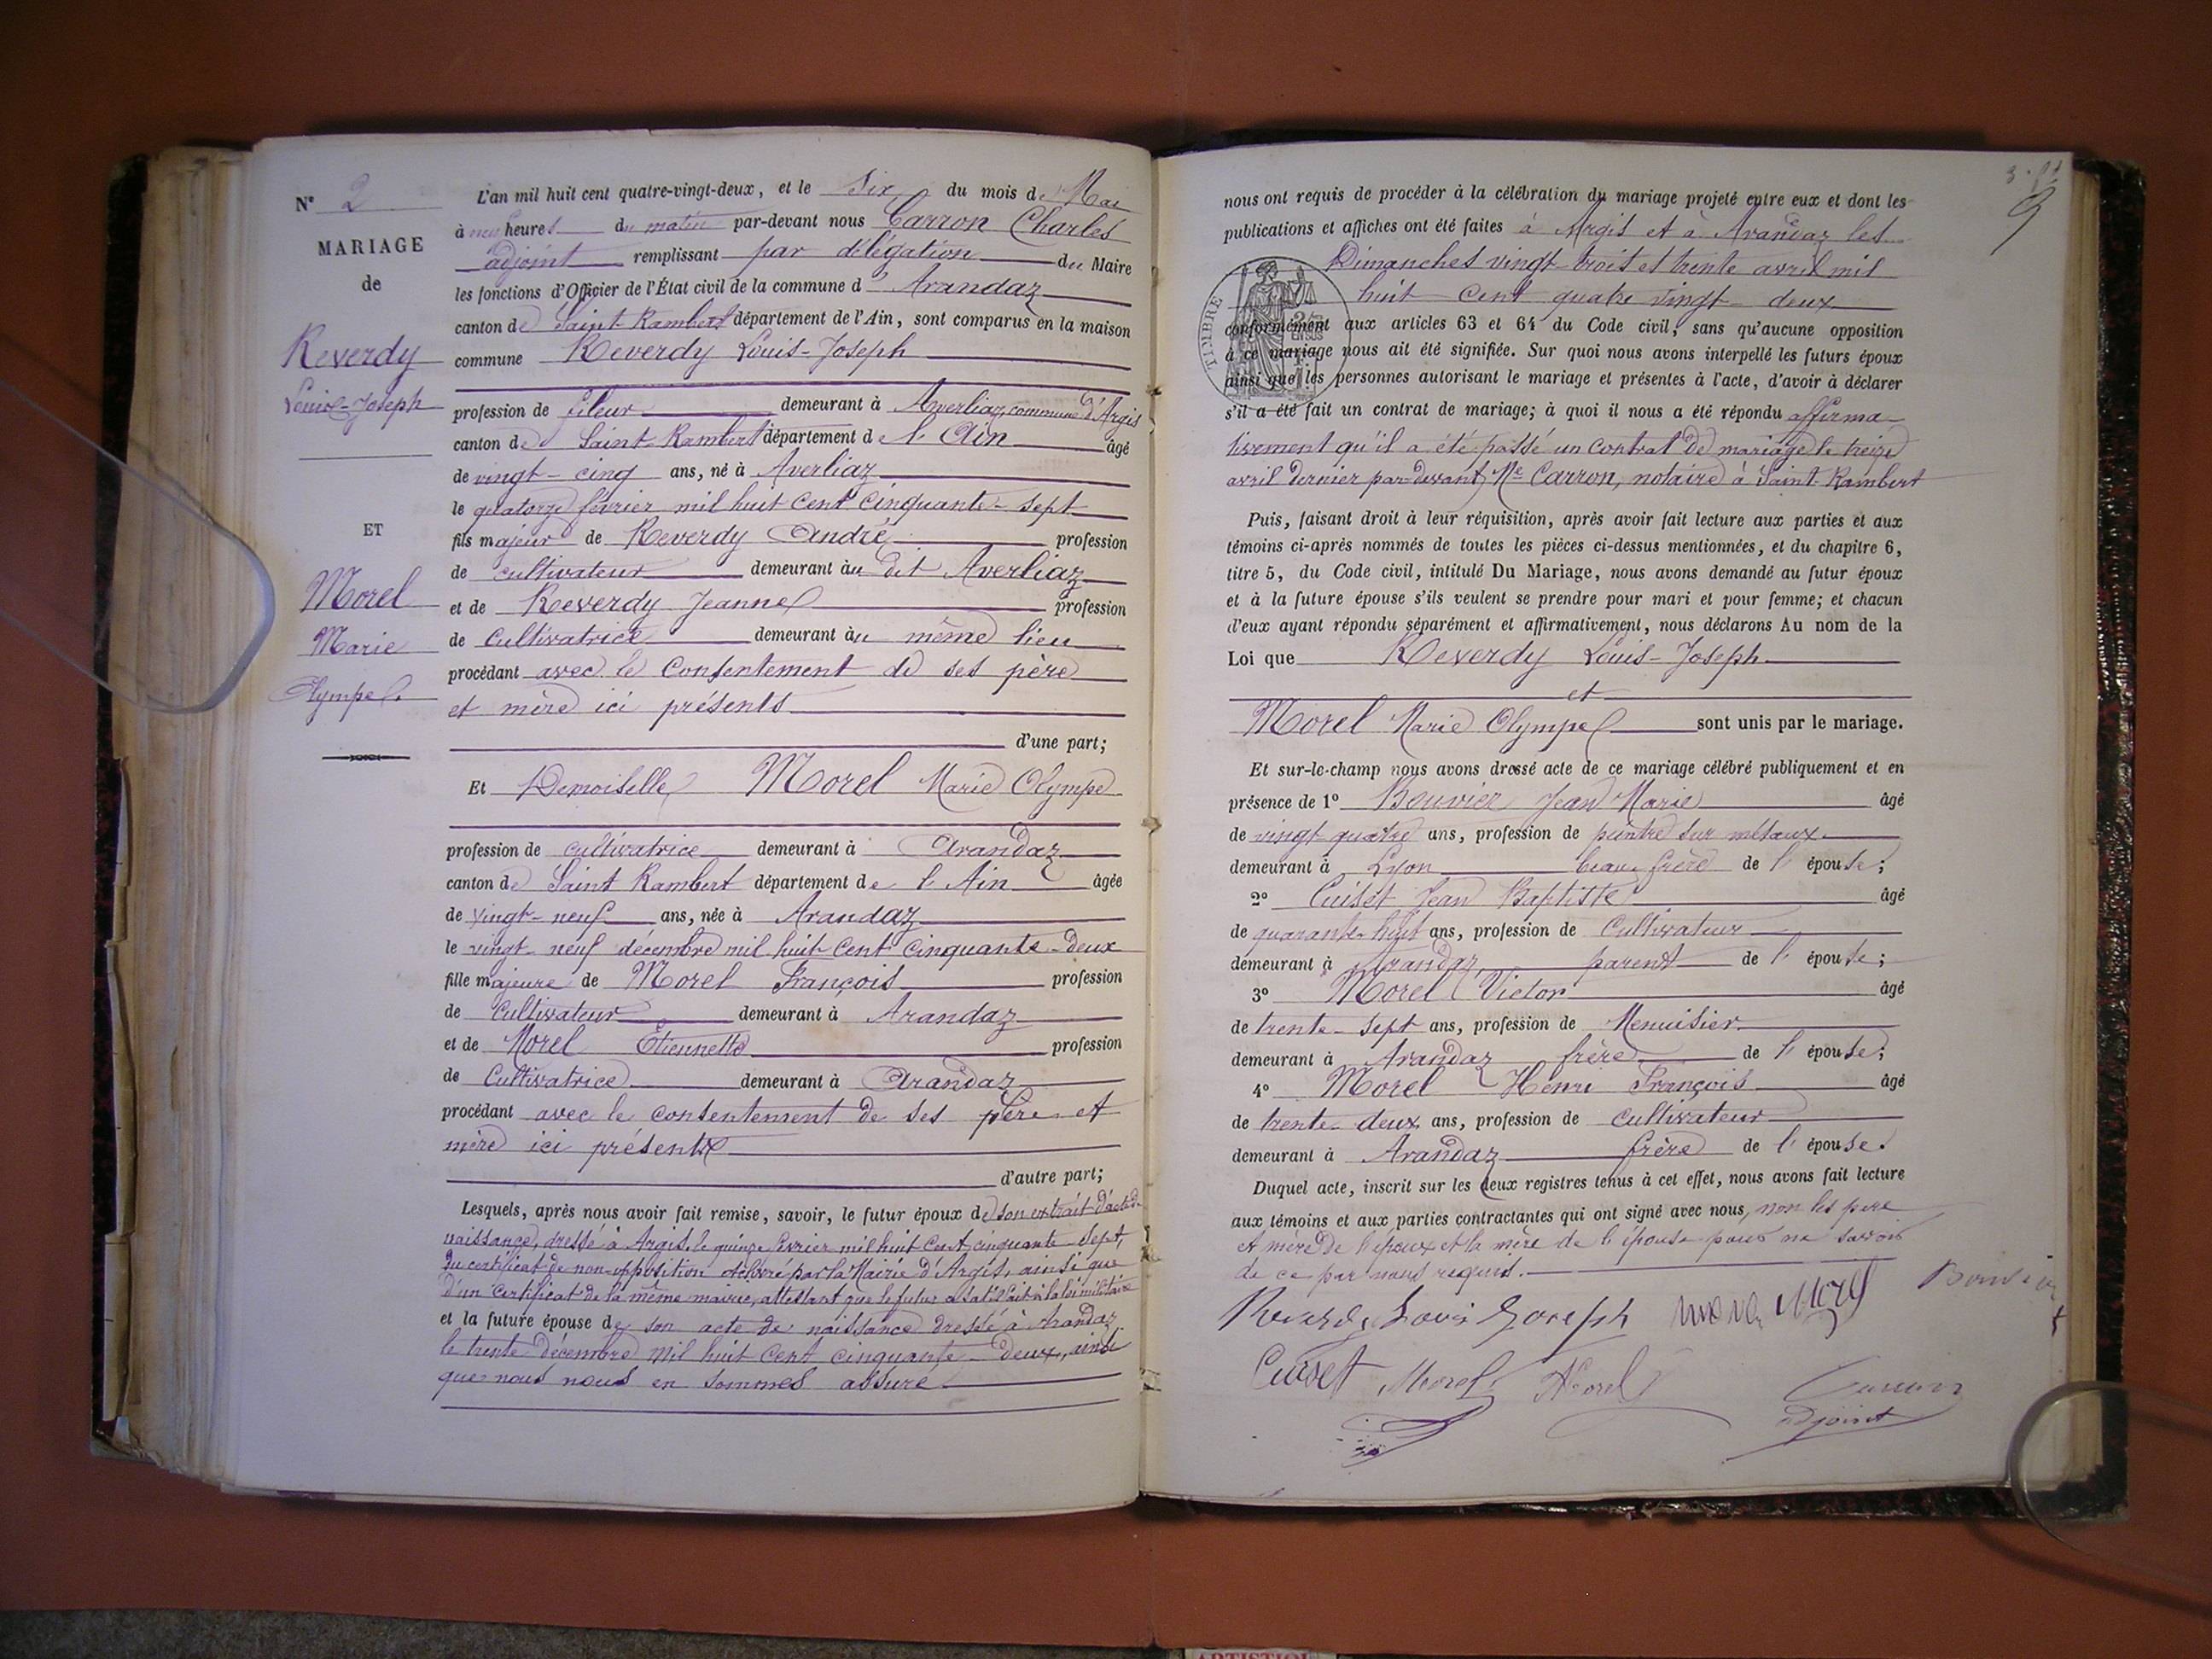 N° 2
MARIAGE
de
Reverdy
Louis-Joseph
ET
Morel
Marie
Olympe
L'an mil huit cent quatre-vingt-deux, et le Six du mois de Mai
à heures du matin par-devant nous Carron Charles
adjoint remplissant par délégation du Maire
les fonctions d'Officier de l'État civil de la commune d'Arandaz
canton de Saint-Rambert département de l'Ain, sont comparus en la maison
commune Reverdy Louis-Joseph
profession de fileur demeurant à Averliaz, commune d'Argis
canton de Saint-Rambert département de l'Ain âgé
de vingt-cinq ans, né à Averliaz
le quatorze février mil huit cent cinquante-sept
fils majeur de Reverdy André profession
de cultivateur demeurant au dit Averliaz
et de Reverdy Jeanne profession
de cultivatrice demeurant au même lieu
procédant avec le consentement de ses père
et mère ici présents
d'une part;
Et Demoiselle Morel Marie Olympe
profession de cultivatrice demeurant à Arandaz
canton de Saint Rambert département de l'Ain âgée
de vingt-neuf ans, née à Arandaz
le vingt-neuf décembre mil huit cent cinquante-deux
fille majeure de Morel François profession
de cultivateur demeurant à Arandaz
et de Morel Etiennette profession
de Cultivatrice demeurant à Arandaz
procédant avec le consentement de ses père et
mère ici présents
d'autre part;
Lesquels, après nous avoir fait remise, savoir, le futur époux de son extrait d'acte de
naissance, dressé à Argis, le quinze février mil huit cent cinquante-sept,
du certificat de non-opposition délivré par la Mairie d'Argis, ainsi que
d'un certificat de la même mairie, attestant que le futur a satisfait à la loi militaire
et la future épouse de son acte de naissance dressé à Arandaz
le trente décembre mil huit cent cinquante-deux, ainsi
que nous nous en sommes assuré
9
nous ont requis de procéder à la célébration du mariage projeté entre eux et dont les
publications et affiches ont été faites à Argis et à Arandaz les
Dimanches vingt-trois et trente avril mil
huit cent quatre vingt-deux
TIMBRE
conformément aux articles 63 et 64 du Code civil, sans qu'aucune opposition
à ce mariage nous ait été signifiée. Sur quoi nous avons interpellé les futurs époux
ainsi que les personnes autorisant le mariage et présentes à l'acte, d'avoir à déclarer
s'il a été fait un contrat de mariage; à quoi il nous a été répondu affirma-
tivement qu'il a été passé un contrat de mariage le treize
avril dernier par-devant Me Carron, notaire à Saint-Rambert
Puis, faisant droit à leur réquisition, après avoir fait lecture aux parties et aux
témoins ci-après nommés de toutes les pièces ci-dessus mentionnées, et du chapitre 6,
titre 5, du Code civil, intitulé Du Mariage, nous avons demandé au futur époux
et à la future épouse s'ils veulent se prendre pour mari et pour femme; et chacun
d'eux ayant répondu séparément et affirmativement, nous déclarons Au nom de la
Loi que Reverdy Louis-Joseph
et
Morel Marie Olympe sont unis par le mariage.
Et sur-le-champ nous avons dressé acte de ce mariage célébré publiquement et en
présence de 1° Bouvier Jean Marie âgé
de vingt-quatre ans, profession de peintre sur métaux
demeurant à Lyon beau-frère de l'épouse;
2° Cuiset Jean Baptiste âgé
de quarante-huit ans, profession de Cultivateur
demeurant à Arandaz parent de l'épouse;
3° Morel Victor âgé
de trente-sept ans, profession de Menuisier
demeurant à Arandaz frère de l'épouse;
4° Morel Henri François âgé
de trente-deux ans, profession de cultivateur
demeurant à Arandaz frère de l'épouse.
Duquel acte, inscrit sur les deux registres tenus à cet effet, nous avons fait lecture
aux témoins et aux parties contractantes qui ont signé avec nous, non les père
et mère de l'époux et la mère de l'épouse pour ne savoir
de ce par nous requis.
Reverdy Louis Joseph Morel Bouvier
Cuiset Morel Morel Carron
adjoint